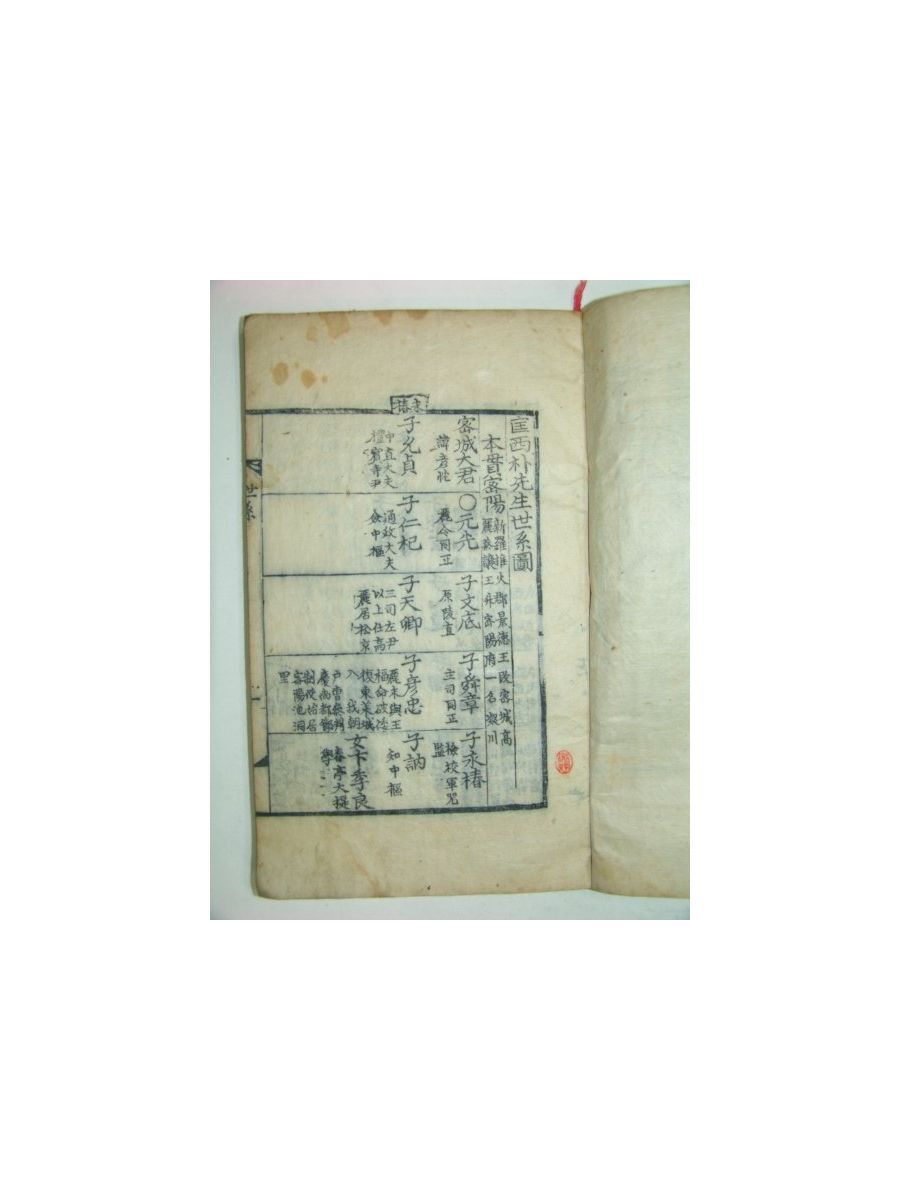 匡西朴先生世系圖
本貫密陽 新羅推火郡景德王改密城高
麗恭讓王升密陽府一名凝川
密城大君
諱彦忱
〇元光
麗令同正
子文底
原陵直
子舜章
主司同正
子永椿
檢校軍器
監
永椿
子允貞
中直大夫
禮賓寺尹
子仁杞
通政大夫
僉中樞
子天卿
三司左尹
以上仕高
麗居松京
子彦忠
麗末與王
福命破倭
復東萊城
入我朝
戶曹參判
慶尚都節
制使始居
密陽池洞
里
子訥
知中樞
女卞季良
春亭大提
學
世系
一